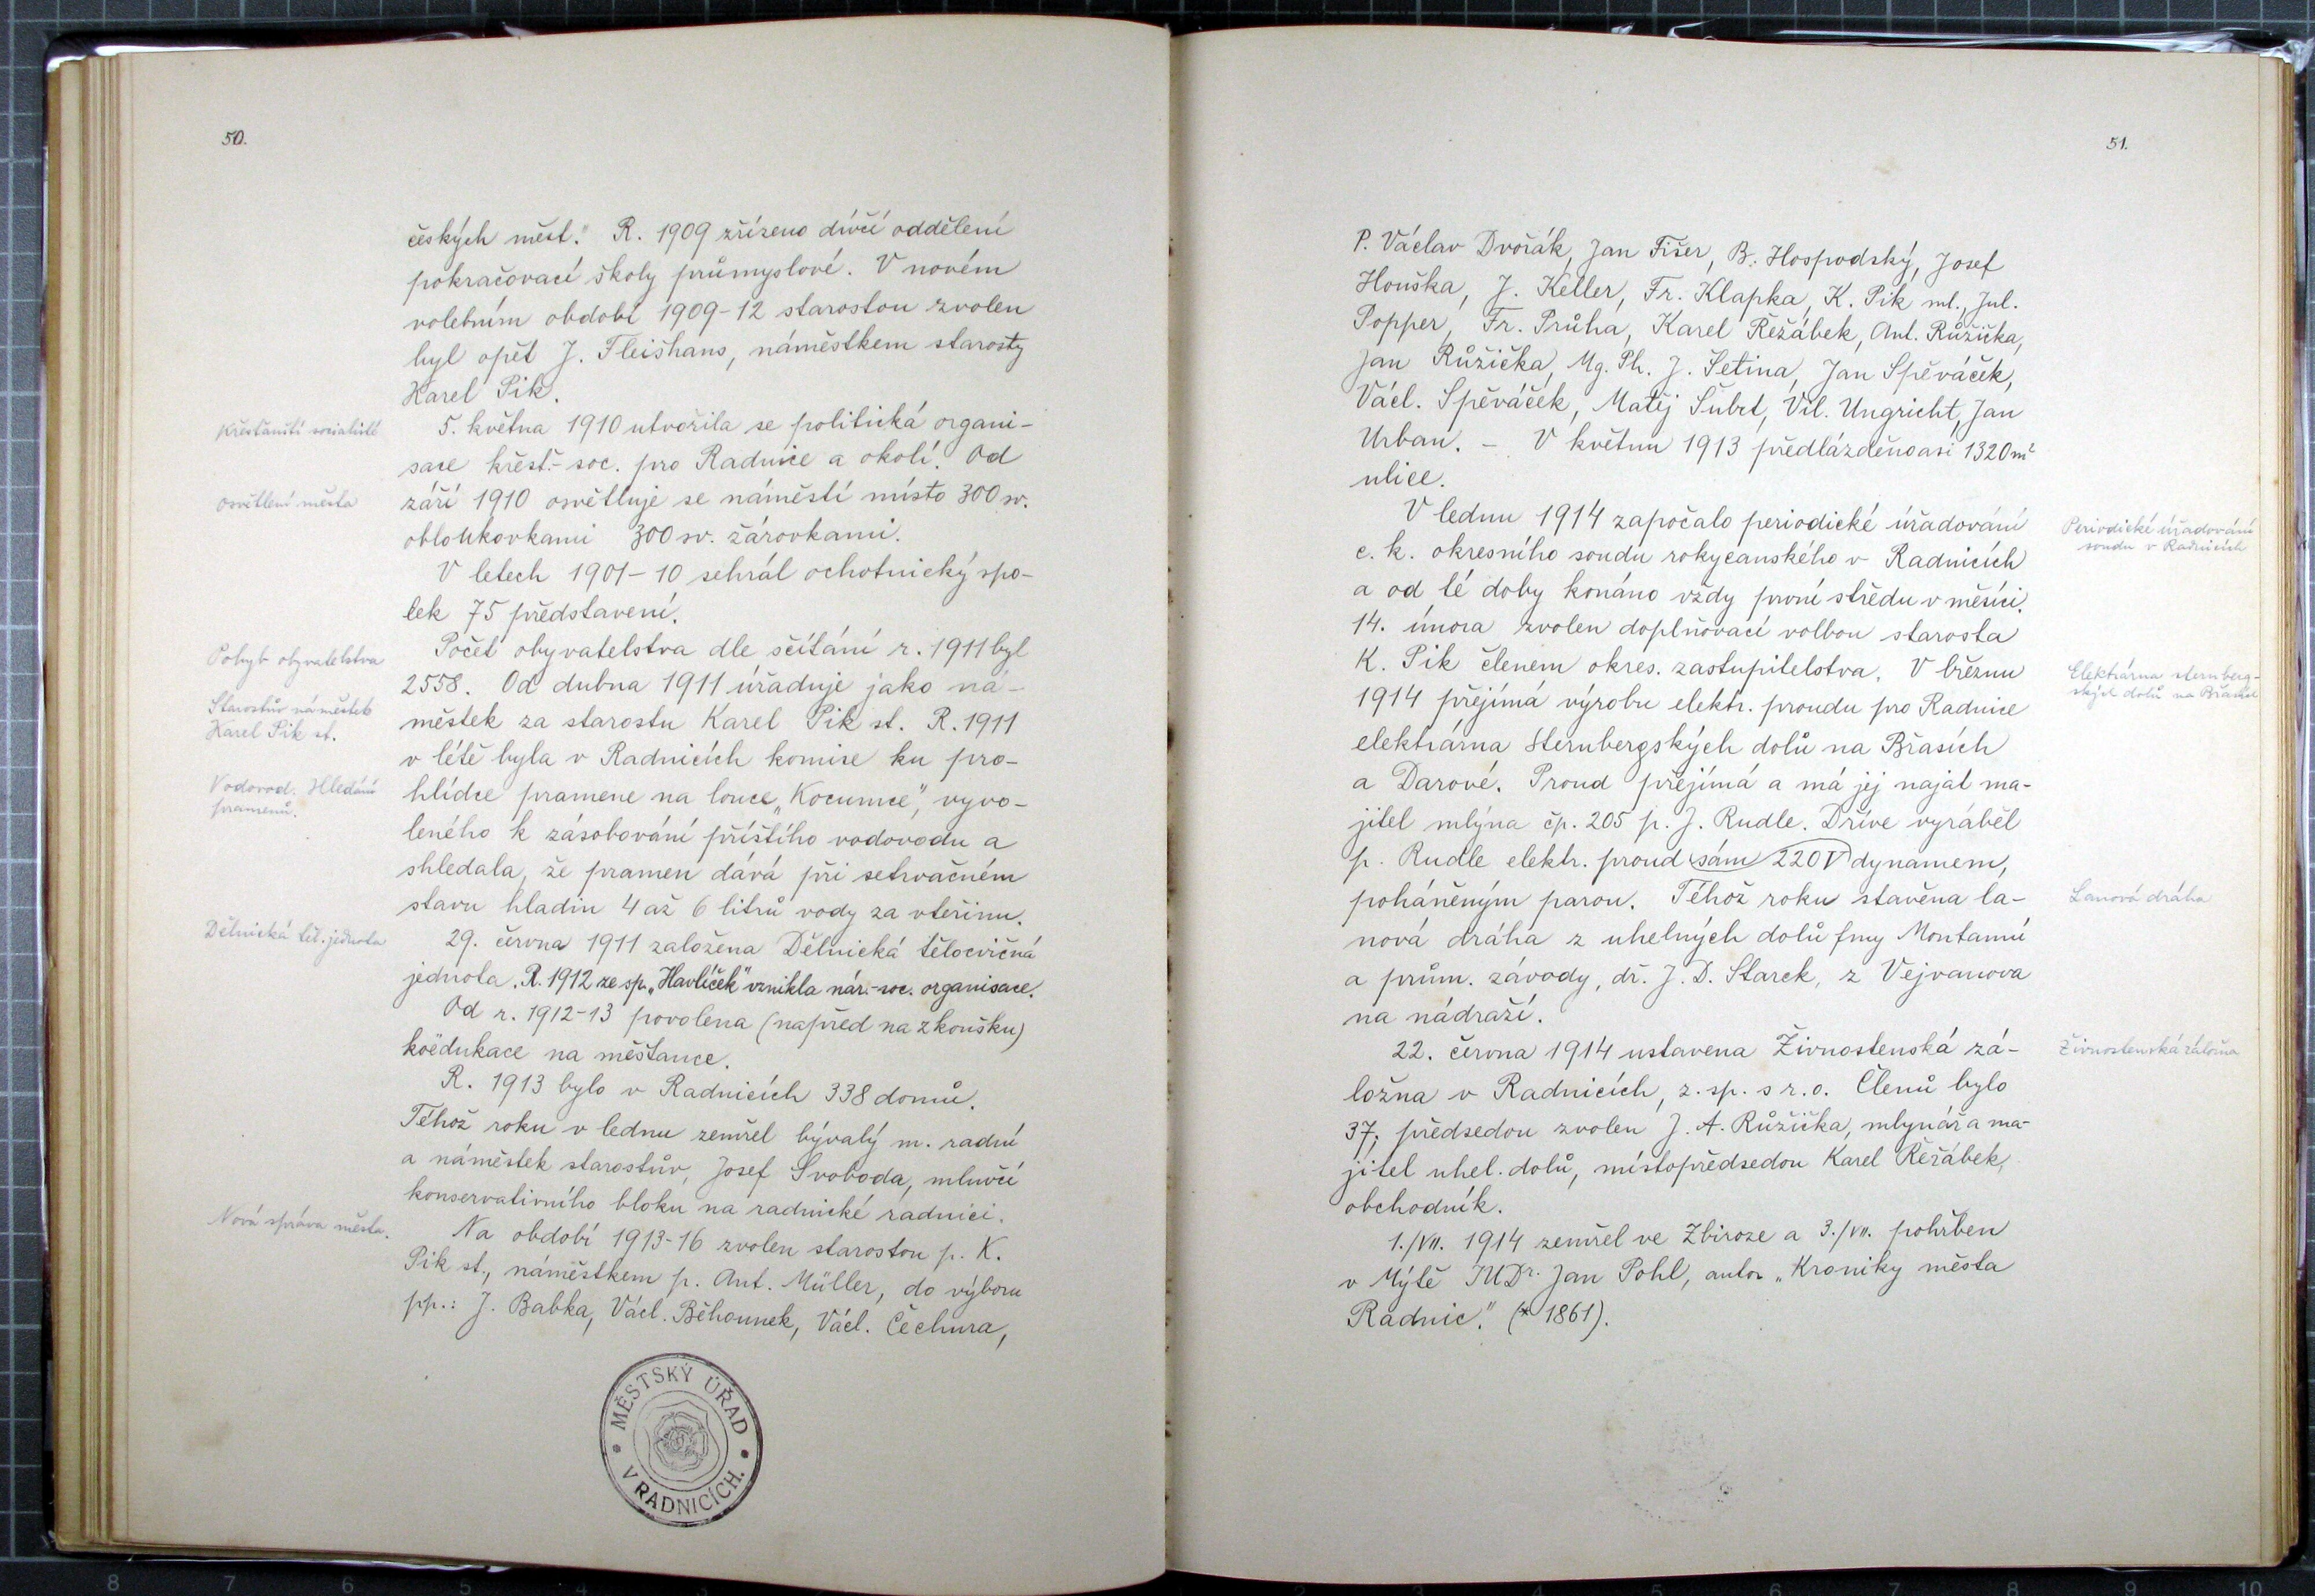 50.
českých měst." R. 1909 zřízeno dívčí oddělení
pokračovací školy průmyslové. V novém
volebním období 1909-12 starostou zvolen
byl opět J. Fleišhans, náměstkem starosty
Karel Pik.
Křesťanští socialisté
5. května 1910 utvořila se politická organi-
sace křesť.-soc. pro Radnice a okolí. Od
osvětlení města
září 1910 osvětluje se náměstí místo 300 sv.
obloukovkami 300 sv. žárovkami.
V letech 1901-10 sehrál ochotnický spo-
lek 75 představení.
Pohyb obyvatelstva
Počet obyvatelstva dle sčítání r. 1911 byl
2558. Od dubna 1911 úřaduje jako ná-
Starostův náměstek
Karel Pik st.
městek za starostu Karel Pik st. R. 1911
v létě byla v Radnicích komise ku pro-
Vodovod. Hledání
pramenů.
hlídce pramene na louce „Kocumce", vyvo-
leného k zásobování příštího vodovodu a
shledala, že pramen dává při setrvačném
stavu hladin 4 až 6 litrů vody za vteřinu.
Dělnická těl. jednota
29. června 1911 založena Dělnická tělocvičná
jednota. R. 1912 ze sp. „Havlíček" vznikla nár.-soc. organisace.
Od r. 1912-13 povolena (napřed na zkoušku)
koëdukace na měšťance.
R. 1913 bylo v Radnicích 338 domů.
Téhož roku v lednu zemřel bývalý m. radní
a náměstek starostův, Josef Svoboda, mluvčí
konservativního bloku na radnické radnici.
Nová správa města.
Na období 1913-16 zvolen starostou p. K.
Pik st., náměstkem p. Ant. Müller, do výboru
pp.: J. Babka, Václ. Běhounek, Václ. Čechura,
MĚSTSKÝ ÚŘAD
V RADNICÍCH.
51.
P. Václav Dvořák, Jan Fišer, B. Hospodský, Josef
Houška, J. Keller, Fr. Klapka, K. Pik ml., Jul.
Popper, Fr. Průha, Karel Řežábek, Ant. Růžička,
Jan Růžička, Mg. Ph. J. Setina, Jan Spěváček,
Václ. Spěváček, Matěj Šubrt, Vil. Ungricht, Jan
Urban. – V květnu 1913 předlážděno asi 1320 m²
ulice.
V lednu 1914 započalo periodické úřadování
Periodické úřadování
soudu v Radnicích
c. k. okresního soudu rokycanského v Radnicích
a od té doby konáno vždy první středu v měsíci.
14. února zvolen doplňovací volbou starosta
K. Pik členem okres. zastupitelstva. V březnu
Elektrárna sternberg-
ských dolů na Břasích
1914 přejímá výrobu elektr. proudu pro Radnice
elektrárna Sternbergských dolů na Břasích
a Darové. Proud přejímá a má jej najat ma-
jitel mlýna čp. 205 p. J. Rudle. Dříve vyráběl
p. Rudle elektr. proud sám 220 V dynamem,
poháněným parou. Téhož roku stavěna la-
Lanová dráha
nová dráha z uhelných dolů fmy Montanní
a prům. závody, dř. J. D. Starck, z Vejvanova
na nádraží.
22. června 1914 ustavena Živnostenská zá-
Živnostenská záložna
ložna v Radnicích, z. sp. s r. o. Členů bylo
37; předsedou zvolen J. A. Růžička, mlynář a ma-
jitel uhel. dolů, místopředsedou Karel Řežábek,
obchodník.
1./VII. 1914 zemřel ve Zbiroze a 3./VII. pohřben
v Mýtě MUDr. Jan Pohl, autor „Kroniky města
Radnic." (* 1861).
8 7 6 5 4 3 2 3 4 5 6 7 8 9 10